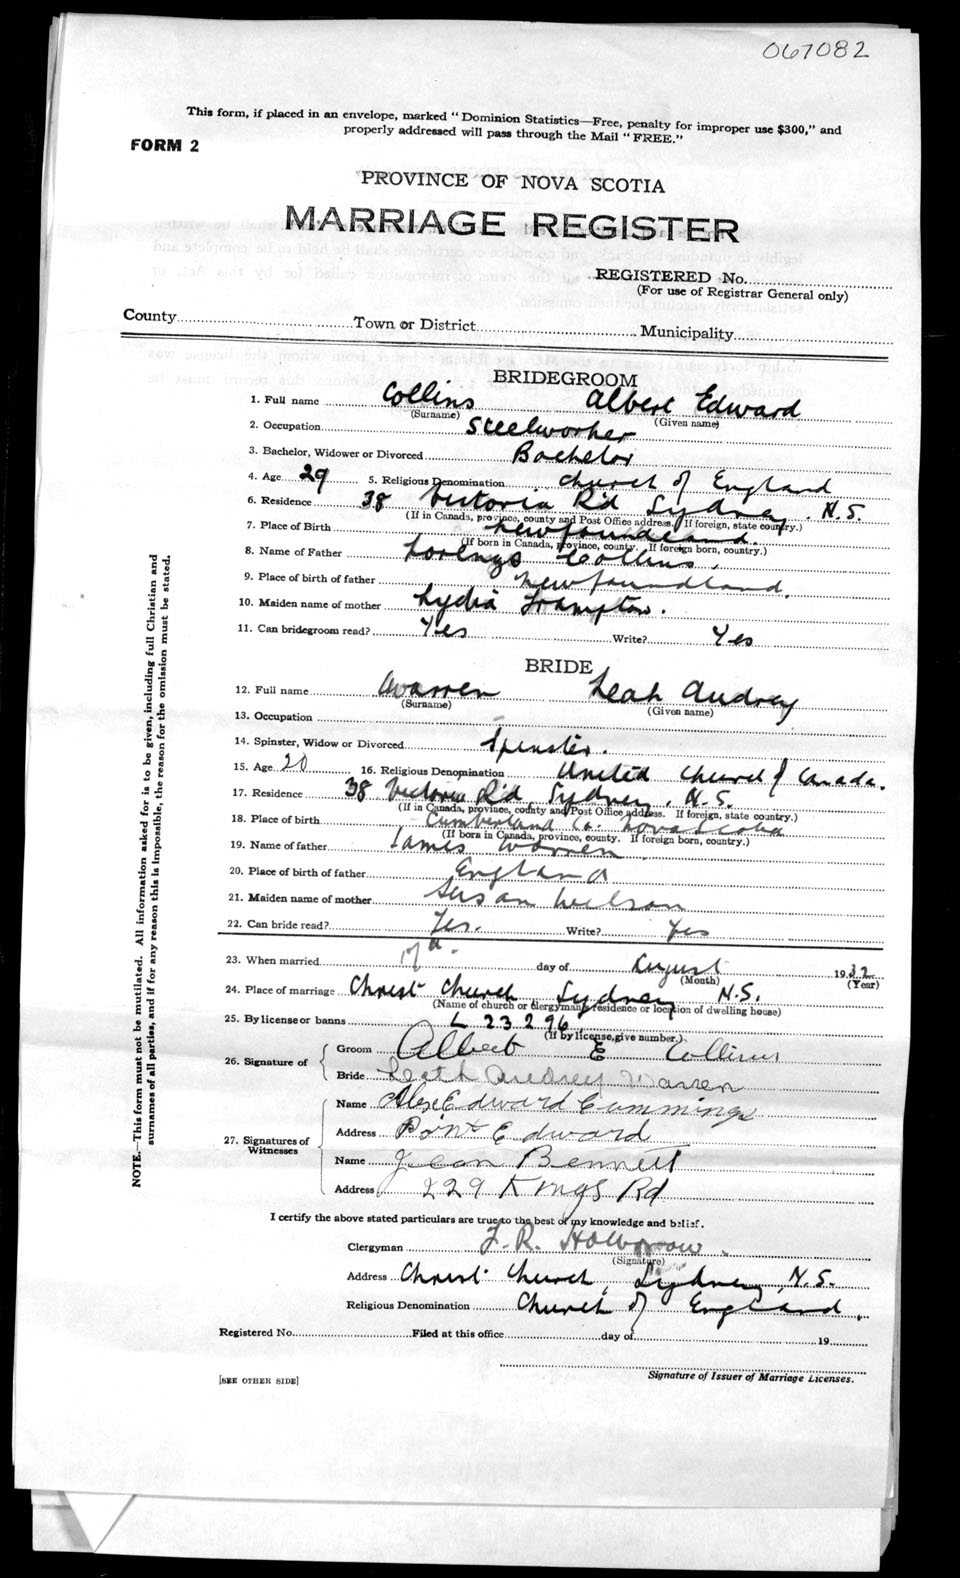 067082
This form, if placed in an envelope, marked "Dominion Statistics—Free, penalty for improper use $300," and
properly addressed will pass through the Mail "FREE."
FORM 2
PROVINCE OF NOVA SCOTIA
MARRIAGE REGISTER
REGISTERED No.
(For use of Registrar General only)
County Town or District Municipality
BRIDEGROOM
1. Full name Collins Albert Edward
(Surname) (Given name)
2. Occupation Steelworker
3. Bachelor, Widower or Divorced Bachelor
4. Age 29 5. Religious Denomination Church of England
6. Residence 38 Victoria R'd Sydney, N.S.
(If in Canada, province, county and Post Office address. If foreign, state country.)
7. Place of Birth Newfoundland.
(If born in Canada, province, county. If foreign born, country.)
8. Name of Father Collins.
9. Place of birth of father Newfoundland.
10. Maiden name of mother Lydia Frampton.
11. Can bridegroom read? Yes Write? Yes
BRIDE
12. Full name Warren Leah Audrey
(Surname) (Given name)
13. Occupation –
14. Spinster, Widow or Divorced Spinster.
15. Age 20 16. Religious Denomination United Church of Canada.
17. Residence 38 Victoria R'd, Sydney, N.S.
(If in Canada, province, county and Post Office address. If foreign, state country.)
18. Place of birth Cumberland Co. Nova Scotia
(If born in Canada, province, county. If foreign born, country.)
19. Name of father James Warren
20. Place of birth of father England
21. Maiden name of mother Susan Wilson
22. Can bride read? Yes. Write? Yes
23. When married 17th. day of August 1932
(Month) (Year)
24. Place of marriage Christ Church Sydney N.S.
(Name of church or clergyman's residence or location of dwelling house)
25. By license or banns L 23296
(If by license, give number.)
26. Signature of Groom Albert E Collins
Bride Leah Audrey Warren
27. Signatures of Witnesses Name Alex Edward Cummings
Address Point Edward
Name Jean Bennett
Address 229 Kings Rd
I certify the above stated particulars are true to the best of my knowledge and belief.
Clergyman F. R.
(Signature)
Address Christ Church, Sydney N.S.
Religious Denomination Church of England.
Registered No. Filed at this office day of 19
Signature of Issuer of Marriage Licenses.
[SEE OTHER SIDE]
NOTE.—This form must not be mutilated. All information asked for is to be given, including full Christian and
surnames of all parties, and if for any reason this is impossible, the reason for the omission must be stated.